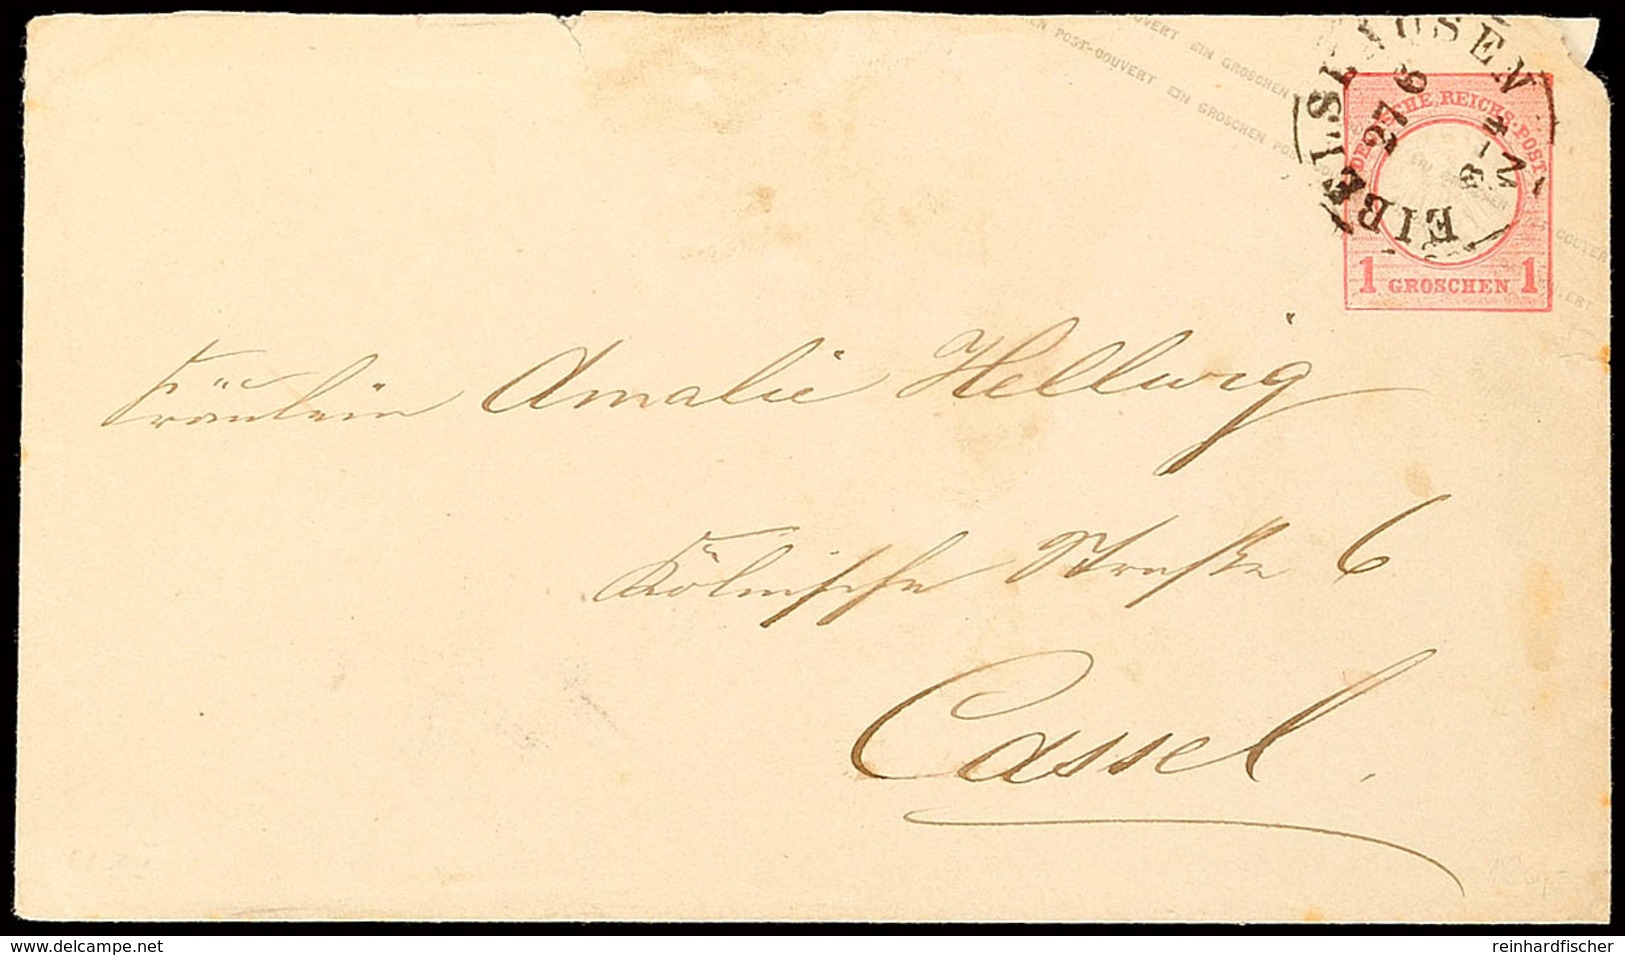 POST-COUVERT EIN GROSCHEN
POST-COUVERT EIN GROSCHEN
EIBELSHAUSEN
27 6
DEUTSCHE REICHS-POST
1 GROSCHEN 1
Fräulein Amalie Hellwig
Kölnische Straße 6
Cassel.
www.delcampe.net
reinhardfischer